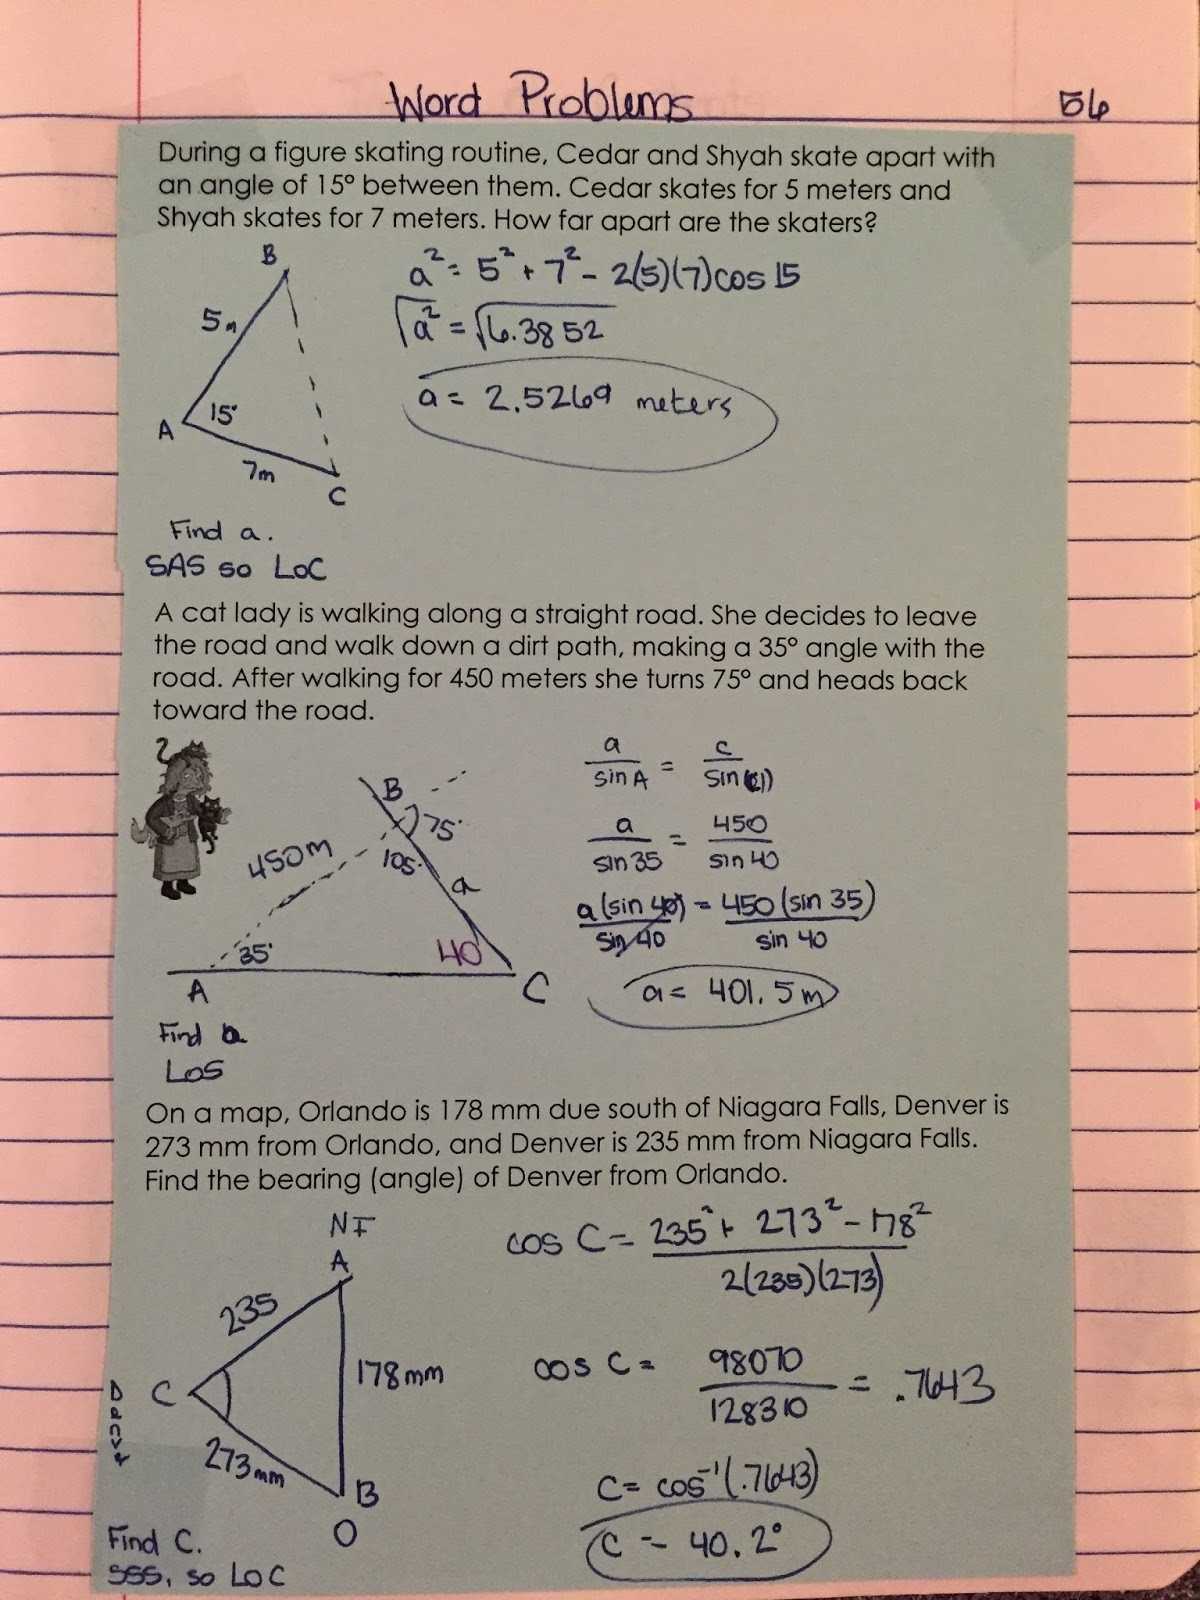 Word Problems
56
During a figure skating routine, Cedar and Shyah skate apart with
an angle of 15° between them. Cedar skates for 5 meters and
Shyah skates for 7 meters. How far apart are the skaters?
B
5m
A
15°
7m
C
a² = 5² + 7² - 2(5)(7)cos 15
√a² = √6.3852
a = 2.5269 meters
Find a.
SAS so LoC
A cat lady is walking along a straight road. She decides to leave
the road and walk down a dirt path, making a 35° angle with the
road. After walking for 450 meters she turns 75° and heads back
toward the road.
B
75°
450m
105°
a
35°
40
A
C
a/sin A = c/sin
a/sin 35 = 450/sin 40
a(sin 40)/sin 40 = 450(sin 35)/sin 40
a = 401.5m
Find a
LoS
On a map, Orlando is 178 mm due south of Niagara Falls, Denver is
273 mm from Orlando, and Denver is 235 mm from Niagara Falls.
Find the bearing (angle) of Denver from Orlando.
NF
A
235
178mm
C
273mm
B
O
cos C = 235² + 273² - 178² / 2(235)(273)
cos C = 98070/128310 = .7643
C = cos⁻¹(.7643)
C = 40.2°
Find C.
SSS, so LoC